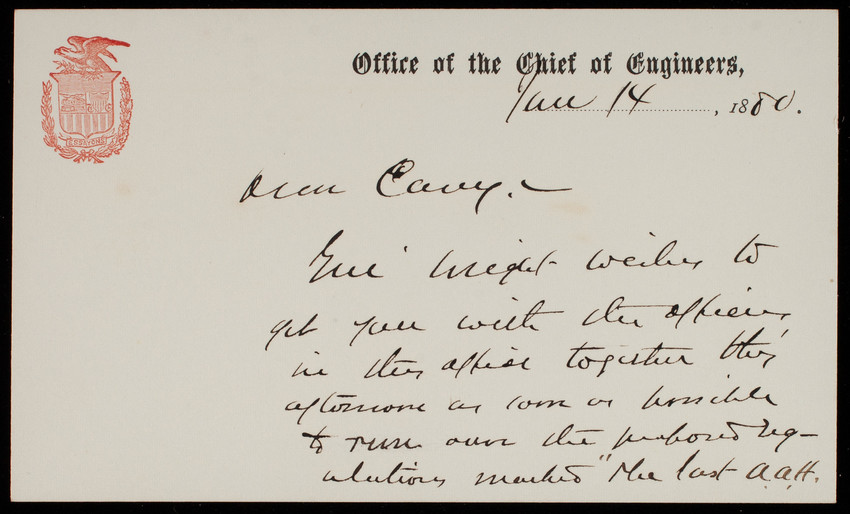 ESSAYONS
Office of the Chief of Engineers,
Jan 14, 1880.
Dear Casey.–
Gen'l Wright wishes to
get you with the officers
in this office together this
afternoon as soon as possible
to run over the proposed reg-
ulations marked "The last A.A.H.